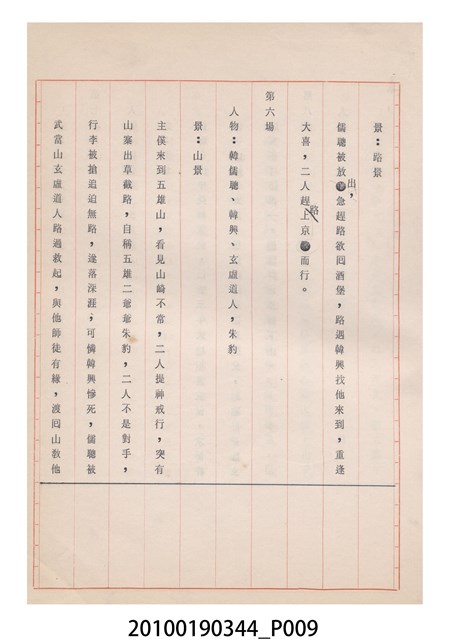 景：路景
儒聰被放出，急趕路欲回酒堡，路遇韓興找他來到，重逢
大喜，二人趕路上京而行。
第六場
人物：韓儒聰、韓興、玄虛道人，朱豹
景：山景
主僕來到五雄山，看見山崎不當，二人提神戒行，突有
山寨出草截路，自稱五雄二爺爺朱豹，二人不是對手，
行李被搶追迫無路，遂落深涯，可憐韓興慘死，儒聰被
武當山玄虛道人路過救起，與他師徒有緣，渡回山教他
20100190344_P009